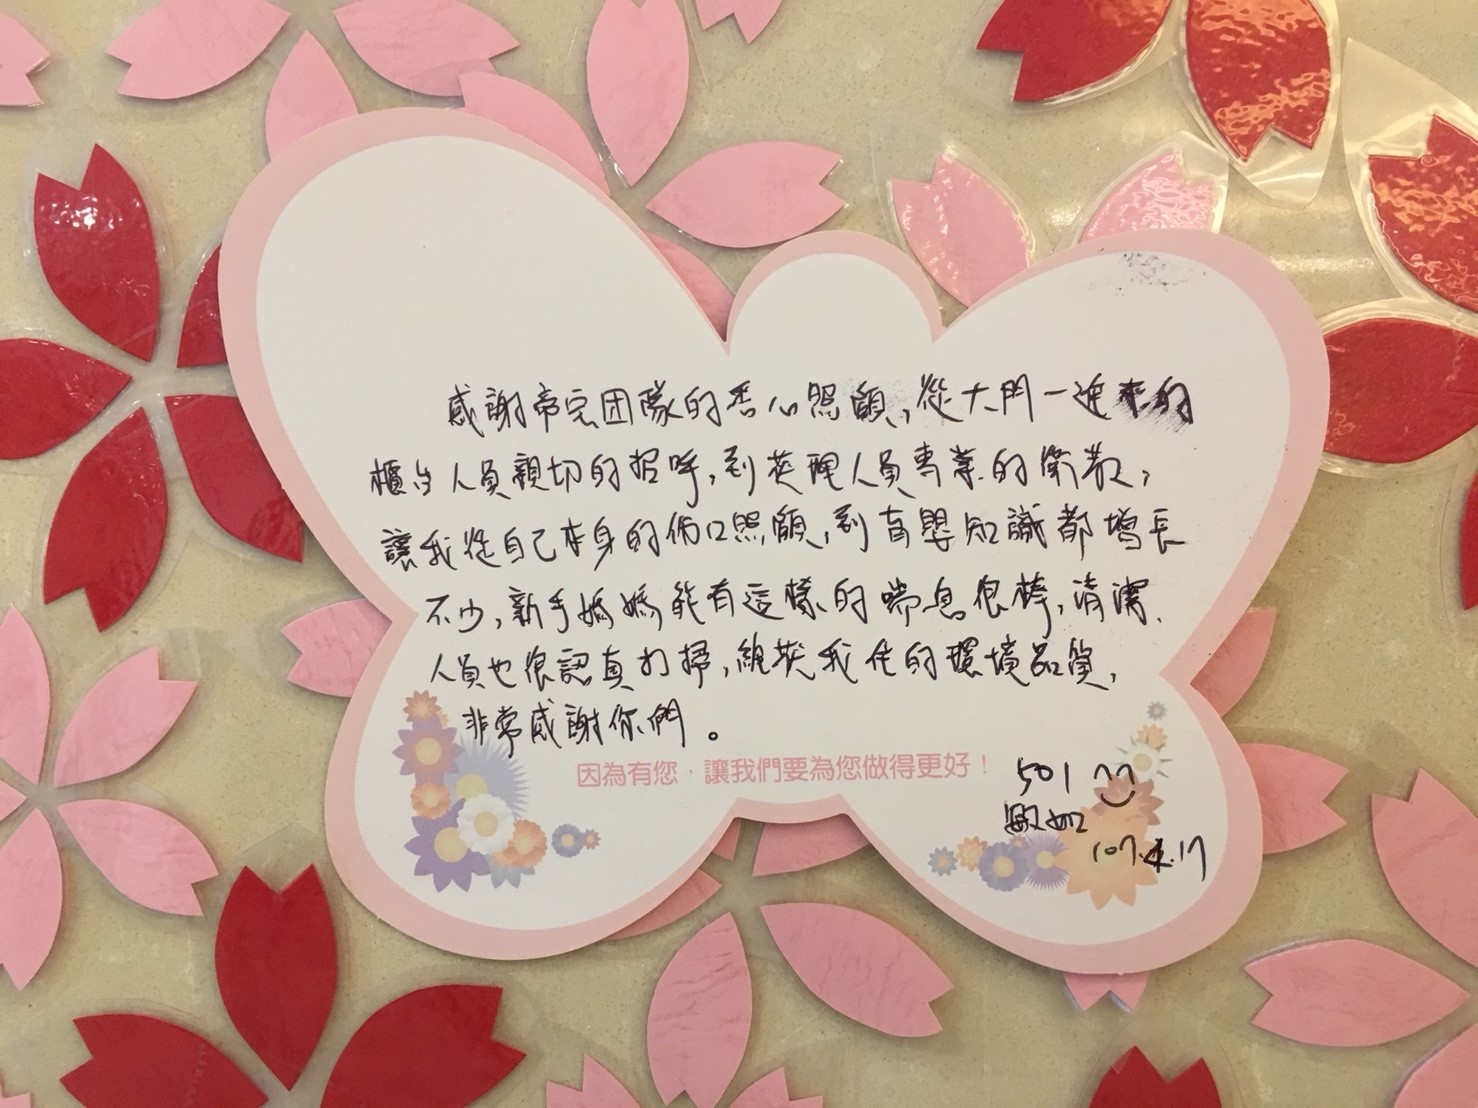 感謝帝宛团隊的悉心照顧,從大門一進來的
櫃台人員親切的招呼,到英理人員專業的衛教,
讓我從自己本身的傷口照顧,到育嬰知識都增長
不少,新手媽媽能有這樣的喘息很棒,清潔
人員也很認真打掃,維英我住的環境品質,
非常感謝你們。
因為有您,讓我們要為您做得更好!
501
敏如
107.4.17